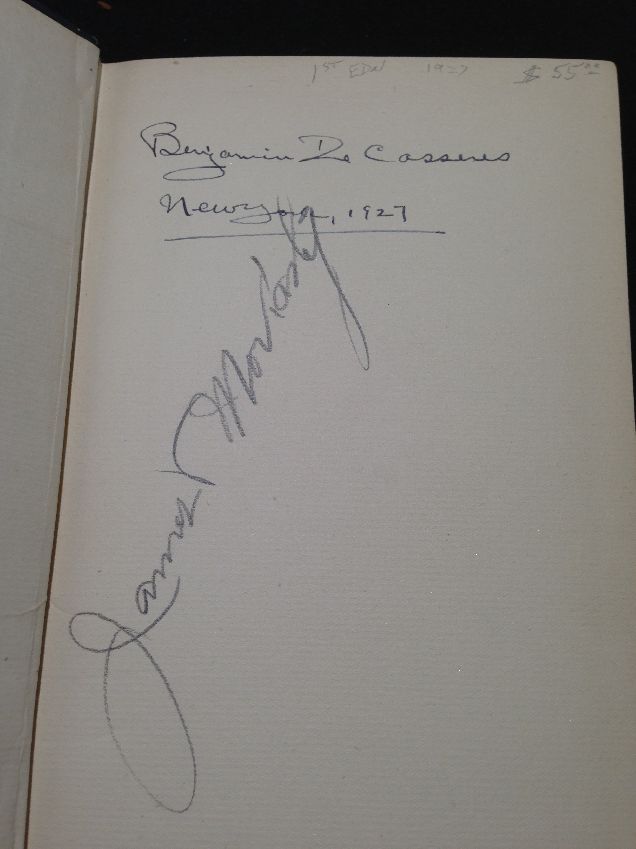 1ST EDN 1927 $ 55.00
Benjamin De Casseres
New York, 1927
James